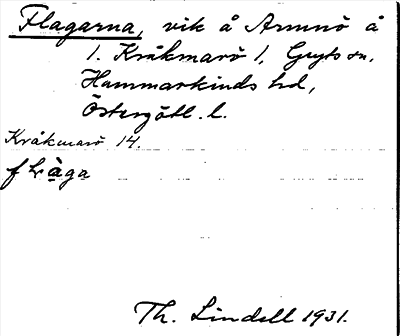 Flagarna, vik å Armnö å
1. Kråkmarö 1, Gryts sn,
Hammarkinds hd,
Östergötl. l.
Kråkmarö 14.
Th. Lindell 1931.